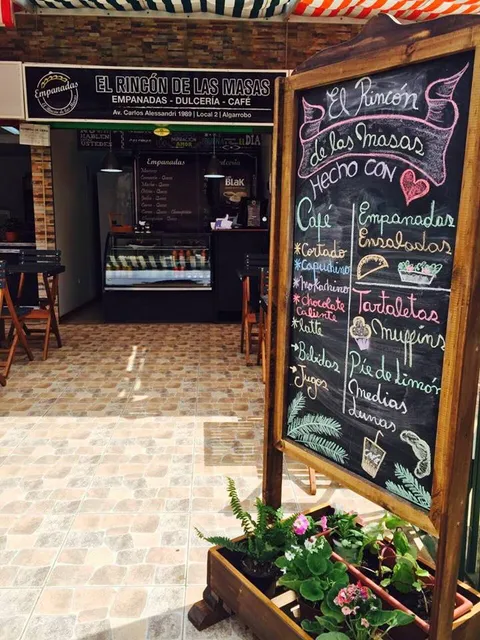 Empanadas
EL RINCÓN DE LAS MASAS
EMPANADAS - DULCERÍA - CAFÉ
Av. Carlos Alessandri 1989 | Local 2 | Algarrobo
Empanadas
BlaK
El Rincón
de las Masas
HECHO CON
Café
*Cortado
*Capuchino
*Mokachino
*chocolate
caliente
*latte
Bebidas
Jugos
Empanadas
Ensaladas
Tartaletas
Muffins
Pie de Limón
Medias
Lunas